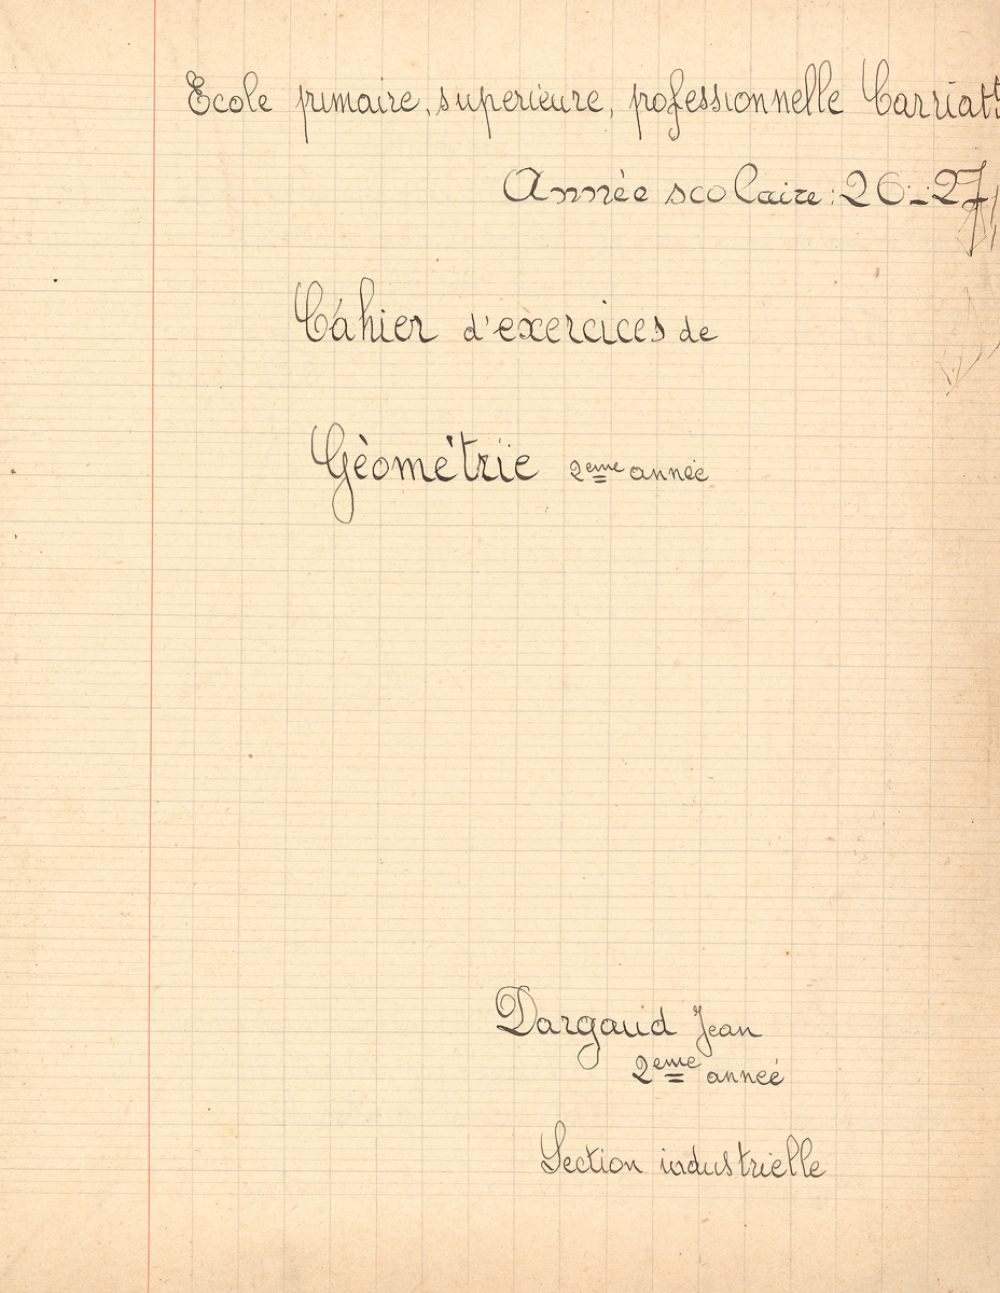 Ecole primaire, superieure, professionnelle Carriat
Année scolaire : 26-27
Cahier d'exercices de
Géométrie 2eme année
Dargaud Jean
2eme année
Section industrielle